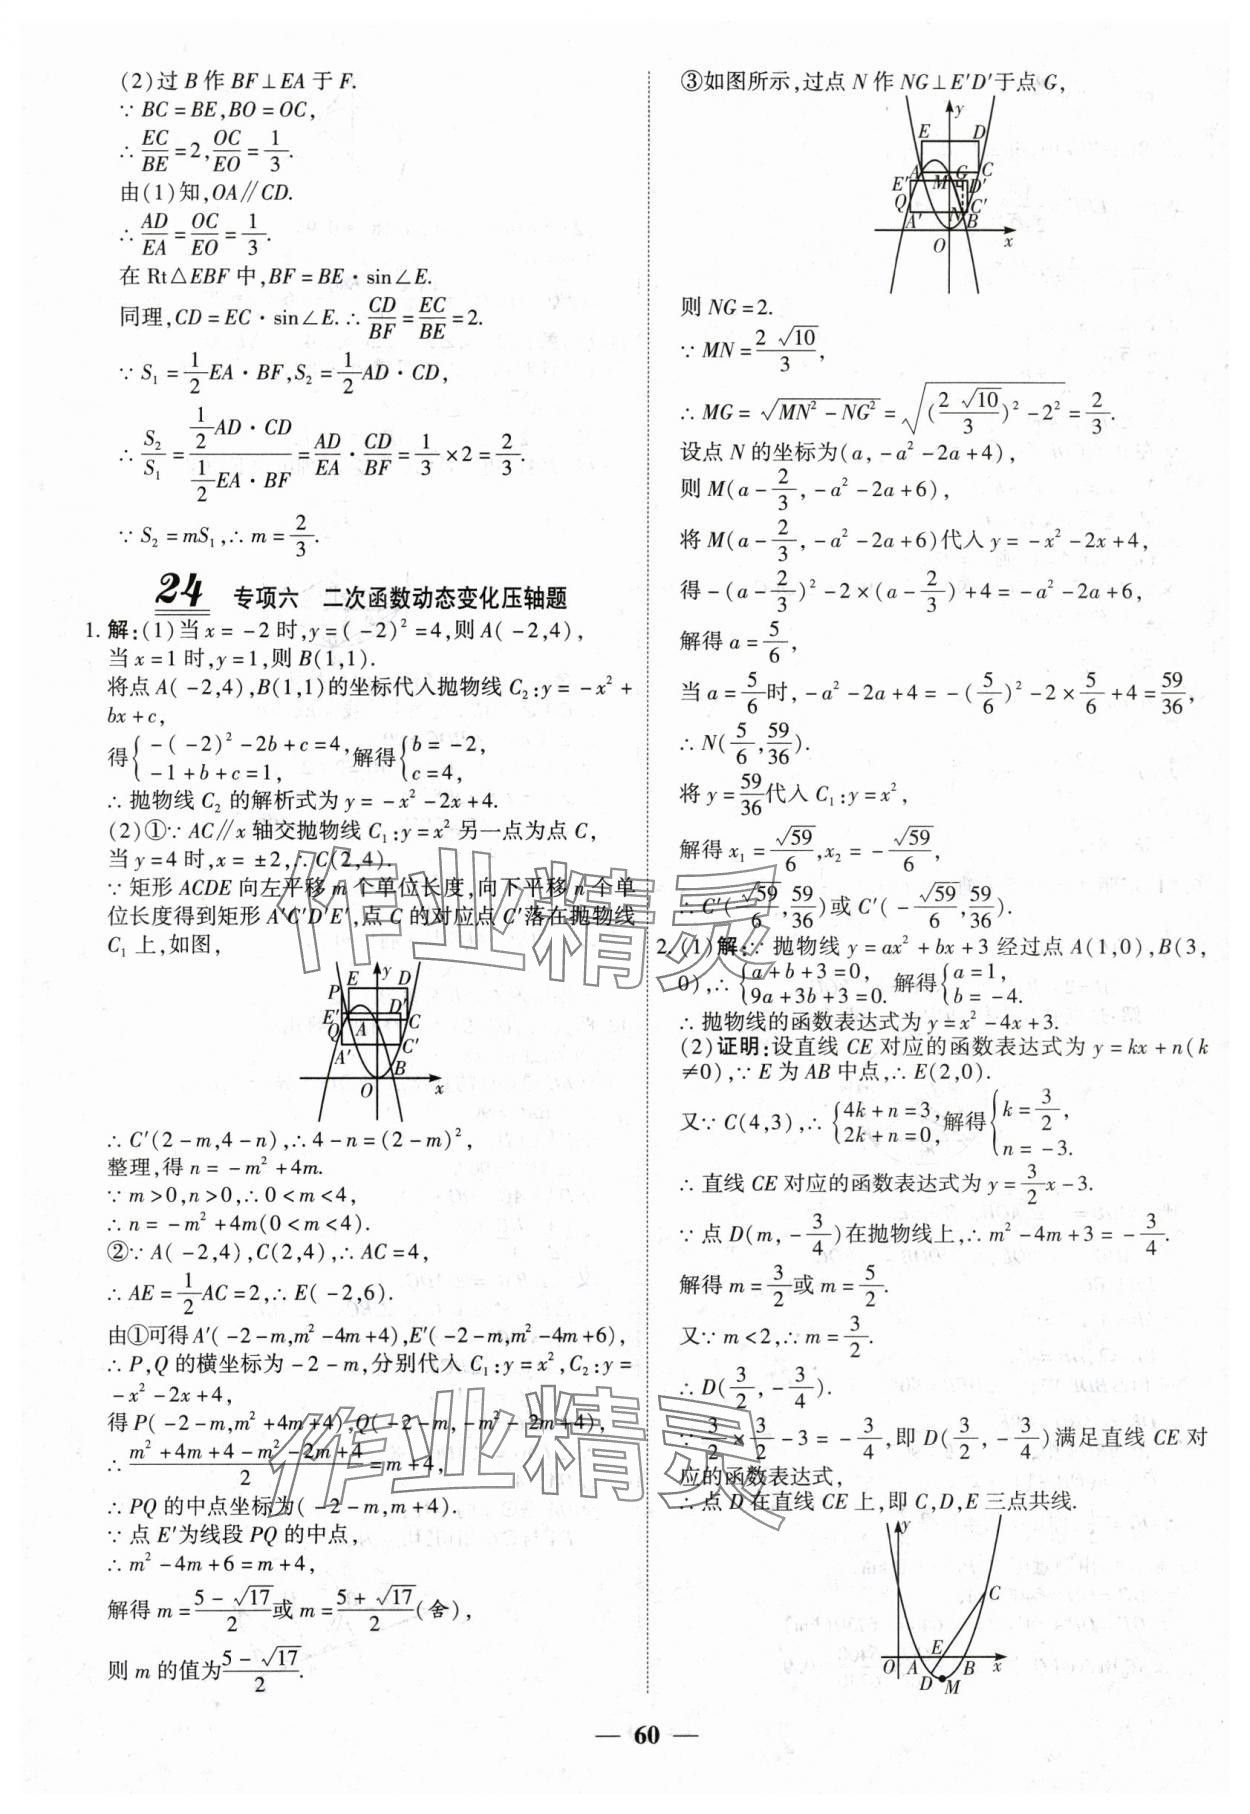 (2)过 B 作 BF⊥EA 于 F.
∵ BC=BE,BO=OC,
∴ EC/BE=2,OC/EO=1/3.
由(1)知,OA∥CD.
∴ AD/EA=OC/EO=1/3.
在 Rt△EBF 中,BF=BE·sin∠E.
同理,CD=EC·sin∠E.∴ CD/BF=EC/BE=2.
∵ S₁=1/2EA·BF,S₂=1/2AD·CD,
∴ S₂/S₁=(1/2AD·CD)/(1/2EA·BF)=AD/EA·CD/BF=1/3×2=2/3.
∵ S₂=mS₁,∴ m=2/3.
24 专项六 二次函数动态变化压轴题
1. 解:(1)当 x=-2 时,y=(-2)²=4,则 A(-2,4),
当 x=1 时,y=1,则 B(1,1).
将点 A(-2,4),B(1,1)的坐标代入抛物线 C₂:y=-x²+
bx+c,
得{-(-2)²-2b+c=4, -1+b+c=1, 解得{b=-2, c=4,
∴ 抛物线 C₂ 的解析式为 y=-x²-2x+4.
(2)①∵ AC∥x 轴交抛物线 C₁:y=x² 另一点为点 C,
当 y=4 时,x=±2,∴ C(2,4).
∵ 矩形 ACDE 向左平移 m 个单位长度,向下平移 n 个单
位长度得到矩形 A'C'D'E',点 C 的对应点 C'落在抛物线
C₁ 上,如图,
P E y D
E' D'
Q A C
A' C'
B
O x
∴ C'(2-m,4-n),∴ 4-n=(2-m)²,
整理,得 n=-m²+4m.
∵ m>0,n>0,∴ 0<m<4,
∴ n=-m²+4m(0<m<4).
②∵ A(-2,4),C(2,4),∴ AC=4,
∴ AE=1/2AC=2,∴ E(-2,6).
由①可得 A'(-2-m,m²-4m+4),E'(-2-m,m²-4m+6),
∴ P,Q 的横坐标为-2-m,分别代入 C₁:y=x²,C₂:y=
-x²-2x+4,
得 P(-2-m,m²+4m+4),Q(-2-m,-m²-2m+4),
∴ (m²+4m+4-m²-2m+4)/2=m+4,
∴ PQ 的中点坐标为(-2-m,m+4).
∵ 点 E'为线段 PQ 的中点,
∴ m²-4m+6=m+4,
解得 m=(5-√17)/2或 m=(5+√17)/2(舍),
则 m 的值为(5-√17)/2.
③如图所示,过点 N 作 NG⊥E'D'于点 G,
y
E D
A G C
E' M D'
Q C'
A' N B
O x
则 NG=2.
∵ MN=2√10/3,
∴ MG=√(MN²-NG²)=√((2√10/3)²-2²)=2/3.
设点 N 的坐标为(a,-a²-2a+4),
则 M(a-2/3,-a²-2a+6),
将 M(a-2/3,-a²-2a+6)代入 y=-x²-2x+4,
得-(a-2/3)²-2×(a-2/3)+4=-a²-2a+6,
解得 a=5/6,
当 a=5/6时,-a²-2a+4=-(5/6)²-2×5/6+4=59/36,
∴ N(5/6,59/36).
将 y=59/36代入 C₁:y=x²,
解得 x₁=√59/6,x₂=-√59/6,
∴ C'(√59/6,59/36)或 C'(-√59/6,59/36).
2. (1)解:∵ 抛物线 y=ax²+bx+3 经过点 A(1,0),B(3,
0),∴{a+b+3=0, 9a+3b+3=0. 解得{a=1, b=-4.
∴ 抛物线的函数表达式为 y=x²-4x+3.
(2)证明:设直线 CE 对应的函数表达式为 y=kx+n(k
≠0),∵ E 为 AB 中点,∴ E(2,0).
又∵ C(4,3),∴{4k+n=3, 2k+n=0, 解得{k=3/2, n=-3.
∴ 直线 CE 对应的函数表达式为 y=3/2x-3.
∵ 点 D(m,-3/4)在抛物线上,∴ m²-4m+3=-3/4.
解得 m=3/2或 m=5/2.
又∵ m<2,∴ m=3/2.
∴ D(3/2,-3/4).
∵ 3/2×3/2-3=-3/4,即 D(3/2,-3/4)满足直线 CE 对
应的函数表达式,
∴ 点 D 在直线 CE 上,即 C,D,E 三点共线.
y
C
E
O A B x
D M
— 60 —
作业精灵
作业精灵